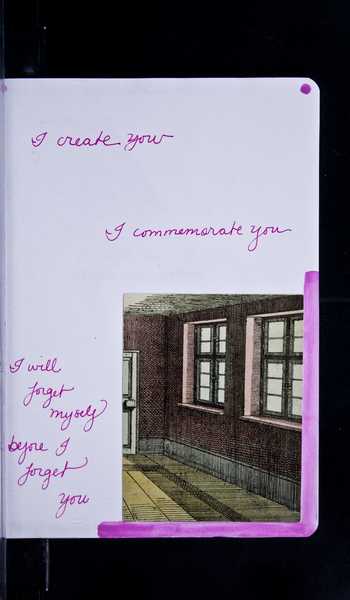 I create you
I commemorate you
I will
forget
myself
before I
forget
you